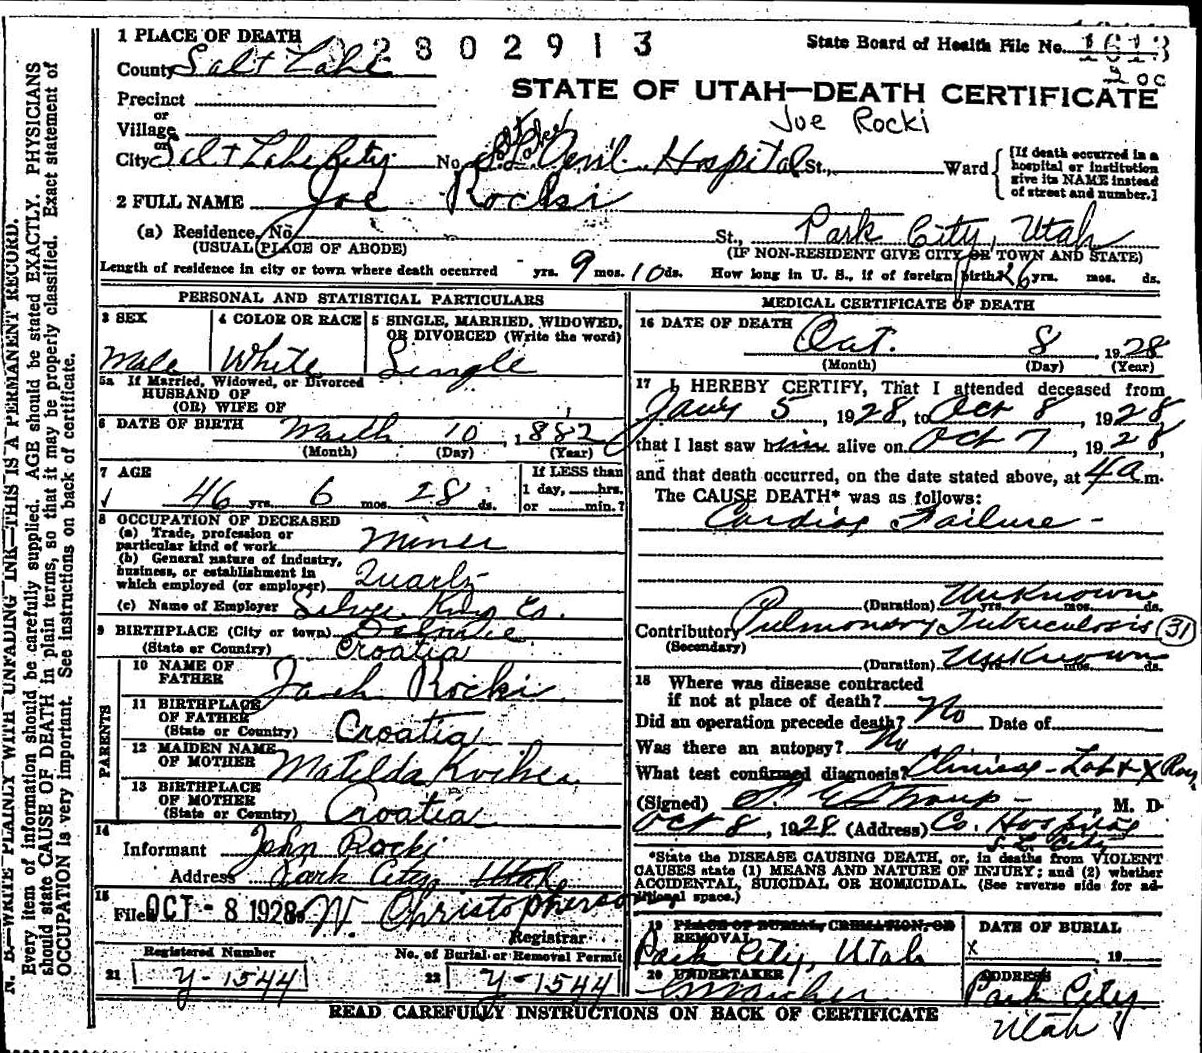 1 PLACE OF DEATH
2802913
State Board of Health File No. 1613
200
County Salt Lake
STATE OF UTAH—DEATH CERTIFICATE
Precinct
Joe Rocki
or
Village
or
City Salt Lake City No. Salt Lake Genl. Hospital St., Ward
[If death occurred in a
hospital or institution
give its NAME instead
of street and number.]
2 FULL NAME Joe Rocki
(a) Residence, No. St., Park City, Utah
(USUAL PLACE OF ABODE) (IF NON-RESIDENT GIVE CITY OR TOWN AND STATE)
Length of residence in city or town where death occurred yrs. 9 mos. 10 ds. How long in U. S., if of foreign birth? 26 yrs. mos. ds.
PERSONAL AND STATISTICAL PARTICULARS
3 SEX
Male
4 COLOR OR RACE
White
5 SINGLE, MARRIED, WIDOWED,
OR DIVORCED (Write the word)
Single
5a If Married, Widowed, or Divorced
HUSBAND OF
(OR) WIFE OF
6 DATE OF BIRTH March 10, 1882
(Month) (Day) (Year)
7 AGE
46 yrs. 6 mos. 28 ds.
If LESS than
1 day, hrs.
or min.?
8 OCCUPATION OF DECEASED
(a) Trade, profession or
particular kind of work Miner
(b) General nature of industry,
business, or establishment in
which employed (or employer) Quartz
(c) Name of Employer Silver King Co.
9 BIRTHPLACE (City or town)
(State or Country) Croatia
PARENTS
10 NAME OF
FATHER Rocki
11 BIRTHPLACE
OF FATHER
(State or Country) Croatia
12 MAIDEN NAME
OF MOTHER Matilda
13 BIRTHPLACE
OF MOTHER
(State or Country) Croatia
14
Informant John Rocki
Address Park City Utah
15
Filed OCT - 8 1928 W. Christopherson
Registrar
Registered Number No. of Burial or Removal Permit
21 Y-1544 22 Y-1544
MEDICAL CERTIFICATE OF DEATH
16 DATE OF DEATH Oct. 8, 1928
(Month) (Day) (Year)
17 I HEREBY CERTIFY, That I attended deceased from
Jany 5, 1928, to Oct 8, 1928,
that I last saw him alive on Oct 7, 1928,
and that death occurred, on the date stated above, at 4 a m.
The CAUSE DEATH* was as follows:
Cardiac Failure -
(Duration) Unknown yrs. mos. ds.
Contributory Pulmonary Tuberculosis 31
(Secondary)
(Duration) Unknown yrs. mos. ds.
18 Where was disease contracted
if not at place of death?
Did an operation precede death? No Date of
Was there an autopsy? No
What test confirmed diagnosis? Clinical - Lab + X Ray
(Signed) M. D.
Oct 8, 1928 (Address) Co. Hospital
S. L. City
*State the DISEASE CAUSING DEATH, or, in deaths from VIOLENT
CAUSES state (1) MEANS AND NATURE OF INJURY; and (2) whether
ACCIDENTAL, SUICIDAL OR HOMICIDAL. (See reverse side for ad-
ditional space.)
19 PLACE OF BURIAL, CREMATION, OR
REMOVAL
Park City, Utah
DATE OF BURIAL
x 19
20 UNDERTAKER
ADDRESS
Park City
Utah
READ CAREFULLY INSTRUCTIONS ON BACK OF CERTIFICATE
N. B.—WRITE PLAINLY WITH UNFADING INK—THIS IS A PERMANENT RECORD.
Every item of information should be carefully supplied. AGE should be stated EXACTLY. PHYSICIANS
should state CAUSE OF DEATH in plain terms, so that it may be properly classified. Exact statement of
OCCUPATION is very important. See instructions on back of certificate.